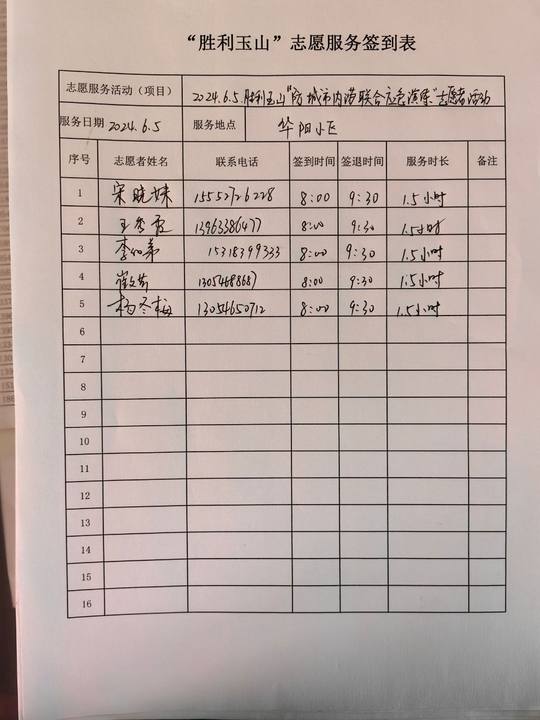 “胜利玉山”志愿服务签到表
志愿服务活动（项目） 2024.6.5.胜利玉山“防城市内涝联合应急演练”志愿者活动
服务日期 2024.6.5 服务地点 华阳小区
序号 志愿者姓名 联系电话 签到时间 签退时间 服务时长 备注
1 宋晓妹 15552726228 8:00 9:30 1.5小时
2 王秀霞 13963386477 8:00 9:30 1.5小时
3 15318399333 8:00 9:30 1.5小时
4 13054688687 8:00 9:30 1.5小时
5 杨冬梅 13054650712 8:00 9:30 1.5小时
6
7
8
9
10
11
12
13
14
15
16